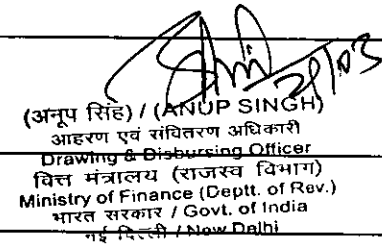 21/03
(अनूप सिंह) / (ANUP SINGH)
आहरण एवं संवितरण अधिकारी
Drawing & Disbursing Officer
वित्त मंत्रालय (राजस्व विभाग)
Ministry of Finance (Deptt. of Rev.)
भारत सरकार / Govt. of India
नई दिल्ली / New Delhi